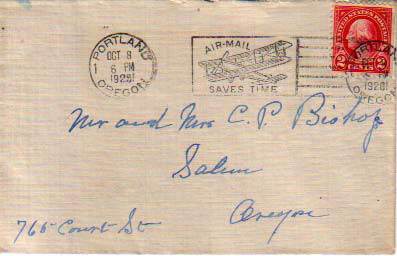 PORTLAND
OCT 8
6 PM
1928
OREGON
1
AIR-MAIL
SAVES TIME
2 CENTS 2
OREGON
1928
Mr and Mrs C. P. Bishop
Salem
765 Court St
Oregon